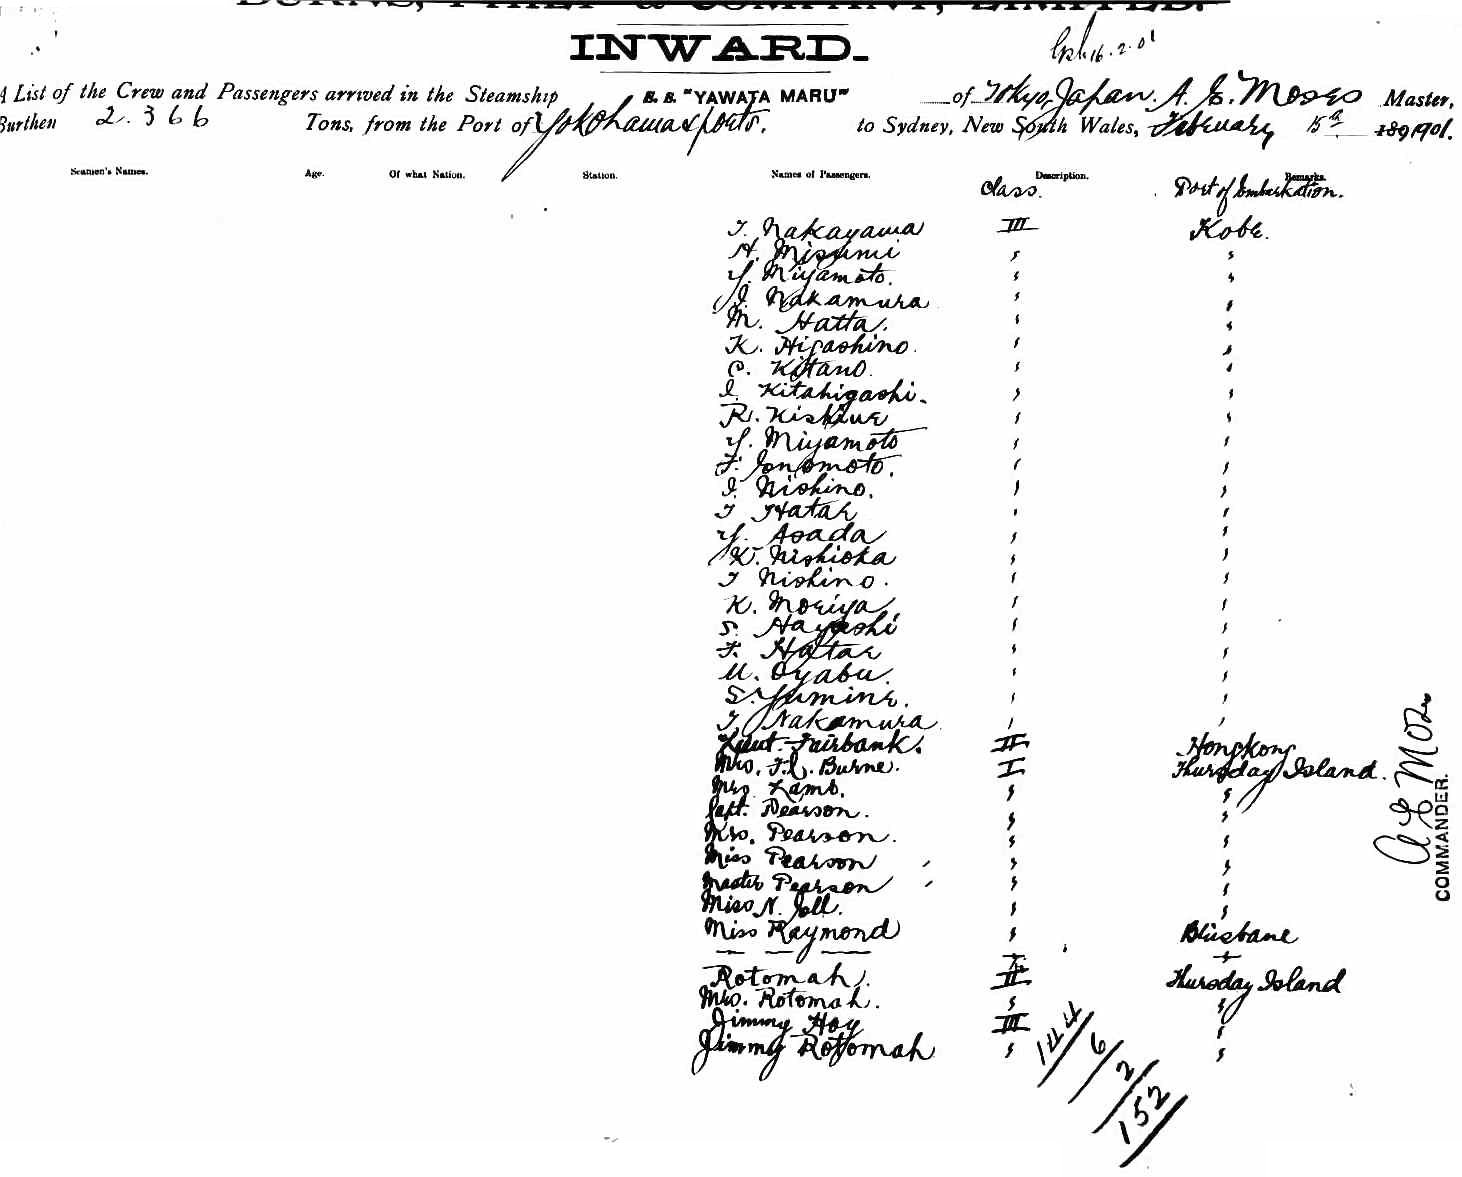 BURNS, PHILP & COMPANY, LIMITED.
INWARD.
16.2.01
A List of the Crew and Passengers arrived in the Steamship S. S. "YAWATA MARU" of Tokyo, Japan. A. E. Moses Master,
Burthen 2.366 Tons, from the Port of Yokohama & ports. to Sydney, New South Wales, February 15th 1901.
Seamen's Names. Age. Of what Nation. Station. Names of Passengers. Description. Remarks.
Class. Port of Embarkation.
T. Nakayama III Kobe.
H. Misumi " "
Y. Miyamoto. " "
I. Nakamura " "
M. Hatta. " "
K. Higashino. " "
C. Kitano. " "
I. Kitahigashi. " "
R. Kishiue " "
Y. Miyamoto " "
F. " "
I. Nishino. " "
T Hatae " "
Y. Asada " "
K. Nishioka " "
T Nishino. " "
K. Moriya " "
S. Hayashi " "
F. Hatae " "
U. Oyabu. " "
S. Yumine. " "
T. Nakamura " "
Lieut. Fairbank. II Hongkong
Mrs. F. L. Burne. I Thursday Island.
Mrs Lamb. " "
Capt. Pearson. " "
Mrs. Pearson. " "
Miss Pearson " "
Master Pearson " "
Miss N. Jell. " "
Miss Raymond " Brisbane
Rotomah. II Thursday Island
Mrs. Rotomah. " "
Jimmy Hoy III "
Jimmy Rotomah " "
144
6
2
152
A E Moses
COMMANDER.